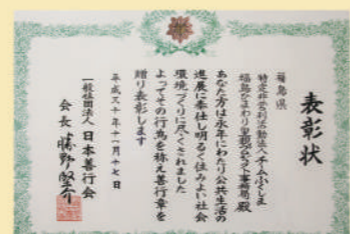 表彰状
福島県
特定非営利活動法人チームふくしま
福島ひまわり里親プロジェクト事務局 殿
あなた方は永年にわたり公共生活の
進展に奉仕し明るく住みよい社会
環境づくりに尽くされました
よってその行為を称え善行章を
贈り表彰します
平成三十年十一月十七日
一般社団法人 日本善行会
会長 勝野堅介